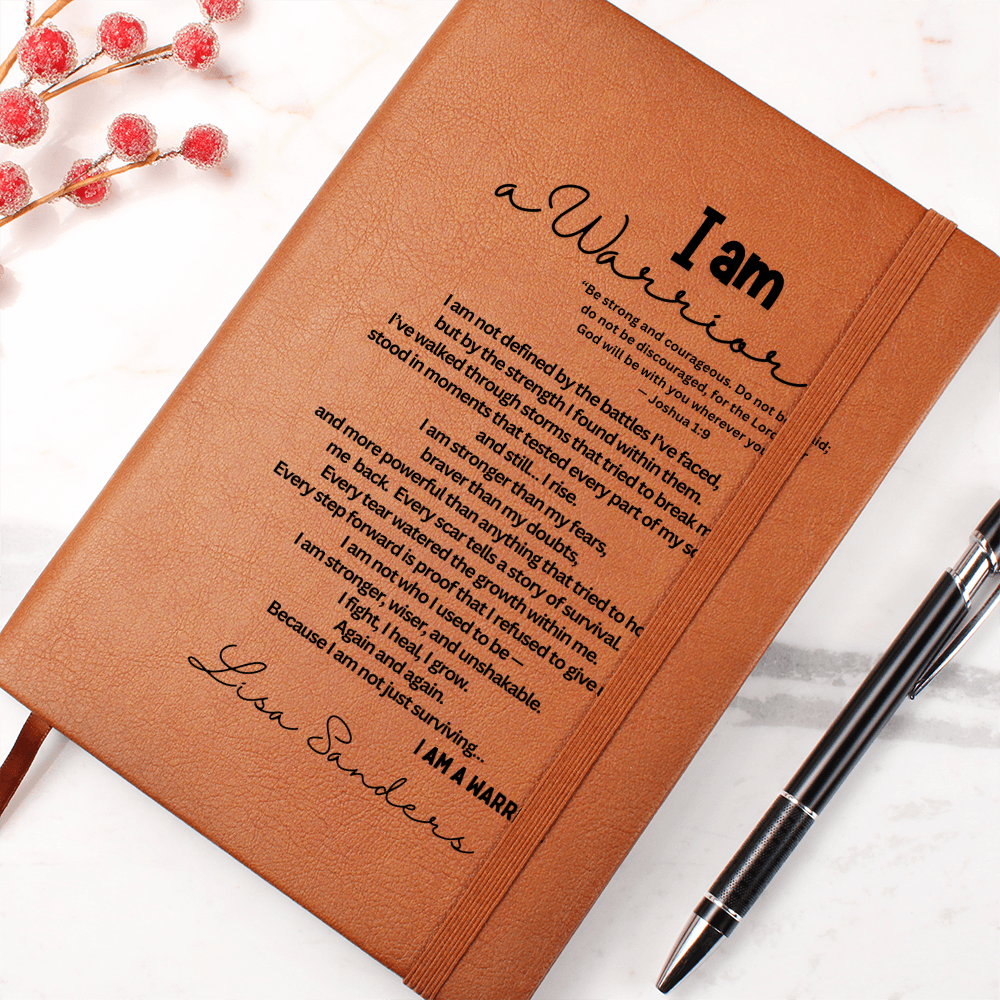 I am
a Warrior
“Be strong and courageous. Do not be
do not be discouraged, for the Lord
God will be with you wherever you
— Joshua 1:9
I am not defined by the battles I’ve faced,
but by the strength I found within them.
I’ve walked through storms that tried to break
stood in moments that tested every part of my
and still... I rise.
I am stronger than my fears,
braver than my doubts,
and more powerful than anything that tried to
me back. Every scar tells a story of survival.
Every tear watered the growth within me.
Every step forward is proof that I refused to give
I am not who I used to be —
I am stronger, wiser, and unshakable.
I fight, I heal, I grow.
Again and again.
Because I am not just surviving...
I AM A WARR
Lisa Sanders